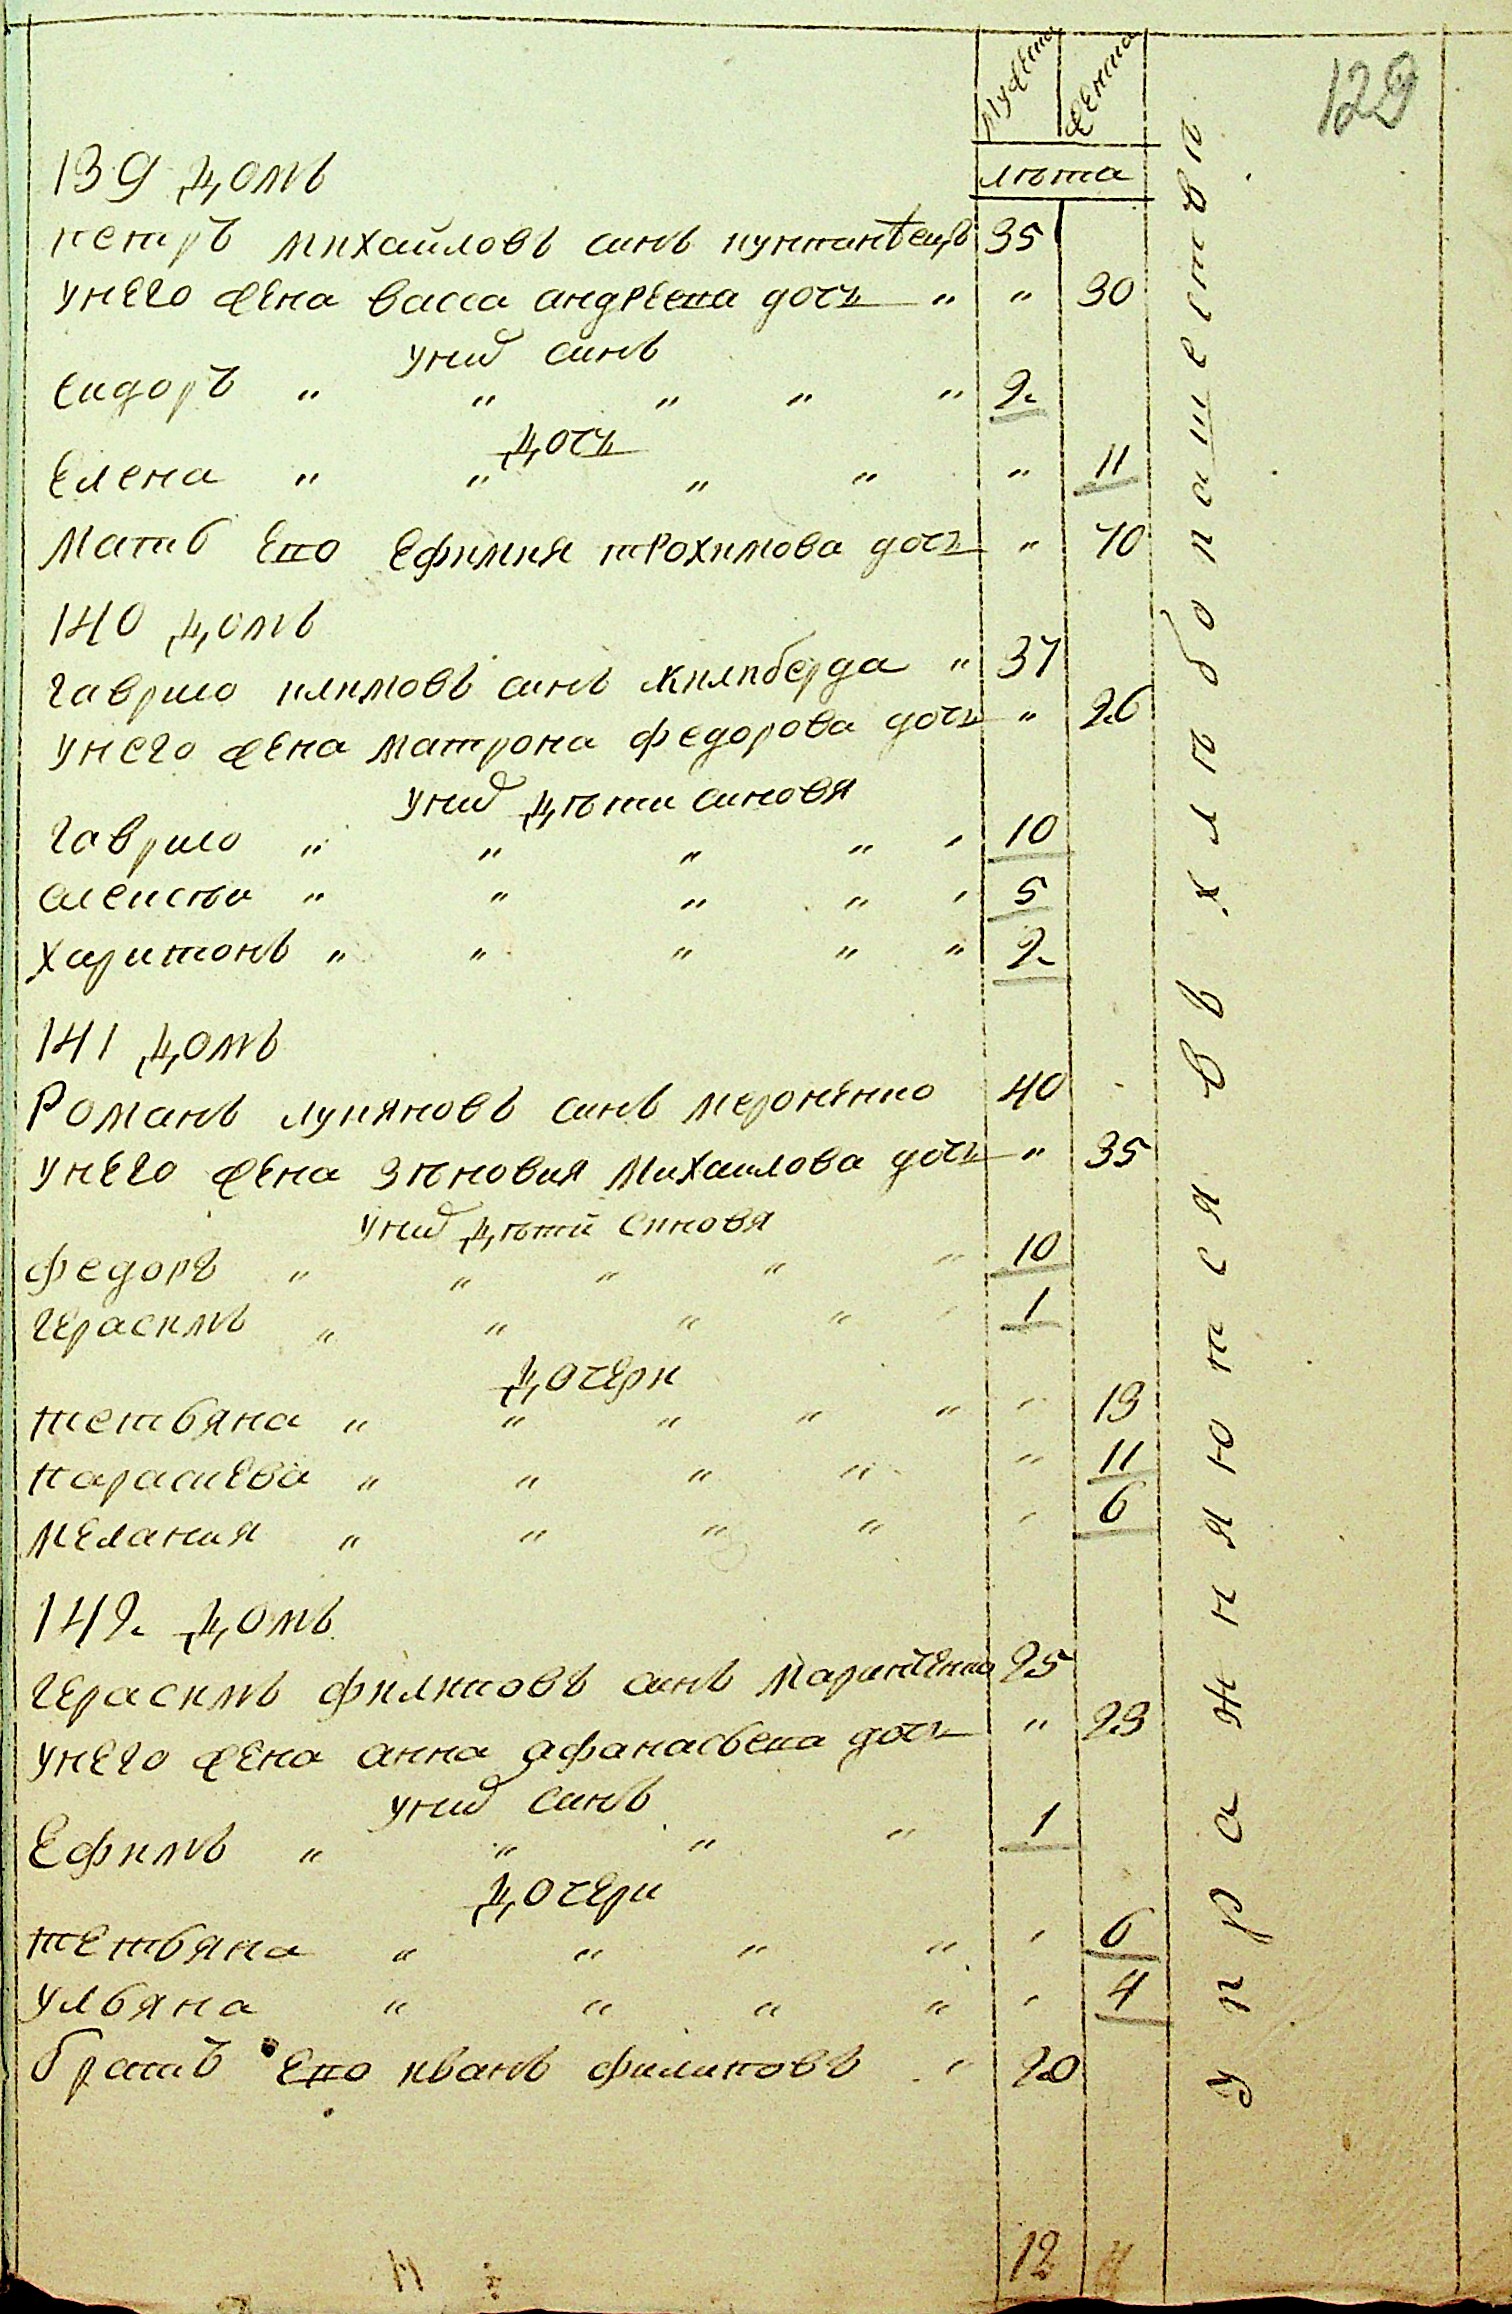 129
мужеска женска
лѣта
139 домъ
петръ михайловъ синъ кунтанѣецъ 35
унего жена васса андрѣева дочъ " " 30
унид синъ
сидоръ " " " " " 2
дочъ
Елена " " " " " 11
Матъ Его Ефимия трохимова дочъ " 70
140 домъ
гаврило климовъ синъ жилиберда " 37
унего жена матрона федорова дочъ " 26
унид дѣти синовя
гаврило " " " " " 10
алексѣи " " " " " 5
харитонъ " " " " " 2
141 домъ
Романъ лукяновъ синъ мероненко 40
унего жена Зѣновия михаилова дочъ " 35
унид дѣти синовя
федоръ " " " " " 10
герасимъ " " " " " 1
дочери
тетьяна " " " " " " 13
парасиева " " " " " 11
мелания " " " " " 6
142 домъ
герасимъ филиповъ синъ 25
унего жена анна афанасьева дочъ " 23
унид синъ
Ефимъ " " " " 1
дочери
тетьяна " " " " " 6
ульяна " " " " " 4
братъ Его иванъ филиповъ " 20
12
упражнянются въ хлѣбопашествѣ